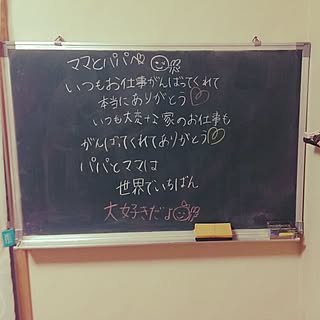 ママとパパへ♡
いつもお仕事がんばってくれて
本当にありがとう♡
いつも大変なのに家のお仕事も
がんばってくれてありがとう♡
パパとママは
世界でいちばん
大好きだよ